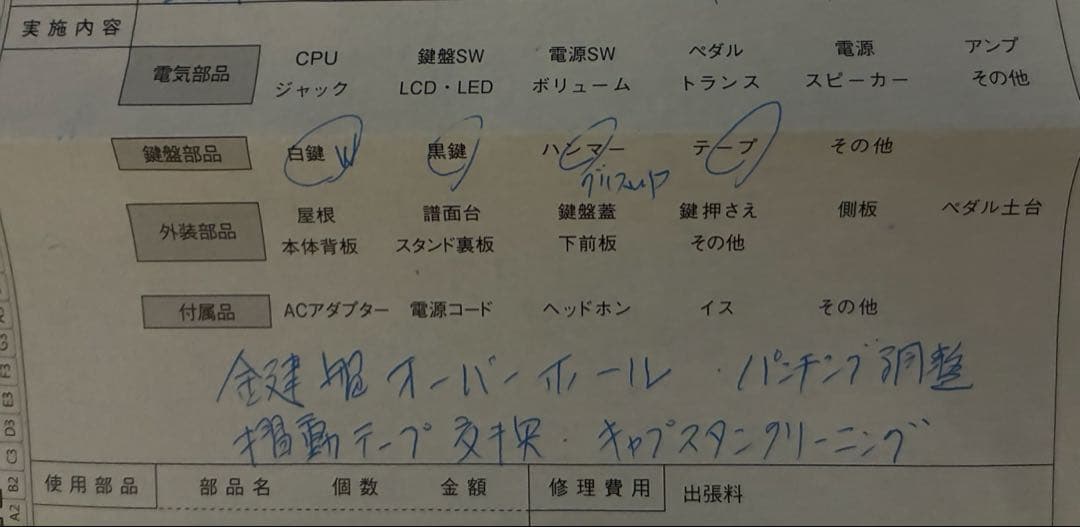 実施内容
電気部品 CPU 鍵盤SW 電源SW ペダル 電源 アンプ
ジャック LCD・LED ボリューム トランス スピーカー その他
鍵盤部品 白鍵 W 黒鍵 ハンマー テープ その他
外装部品 屋根 譜面台 鍵盤蓋 鍵押さえ 側板 ペダル土台
本体背板 スタンド裏板 下前板 その他
付属品 ACアダプター 電源コード ヘッドホン イス その他
鍵盤オーバーホール・パンチング調整
摺動テープ交換・キャプスタンクリーニング
使用部品 部品名 個数 金額 修理費用 出張料
G3
F3
E3
D3
C3
B2
A2